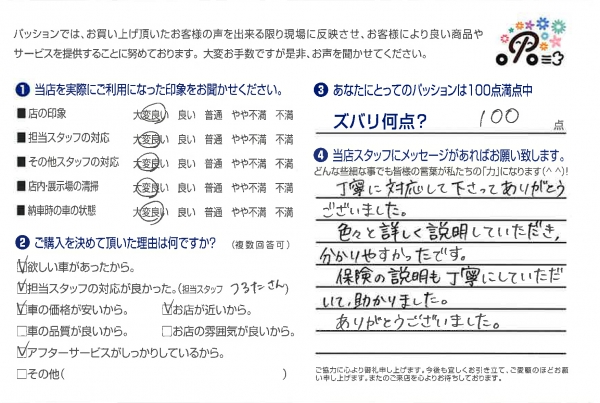 パッションでは、お買い上げ頂いたお客様の声を出来る限り現場に反映させ、お客様により良い商品や
サービスを提供することに努めております。大変お手数ですが是非、お声を聞かせてください。
❶ 当店を実際にご利用になった印象をお聞かせください。
■ 店の印象 大変良い 良い 普通 やや不満 不満
■ 担当スタッフの対応 大変良い 良い 普通 やや不満 不満
■ その他スタッフの対応 大変良い 良い 普通 やや不満 不満
■ 店内・展示場の清掃 大変良い 良い 普通 やや不満 不満
■ 納車時の車の状態 大変良い 良い 普通 やや不満 不満
❷ ご購入を決めて頂いた理由は何ですか？（複数回答可）
☑欲しい車があったから。
☑担当スタッフの対応が良かった。（担当スタッフ つるたさん）
☑車の価格が安いから。 ☑お店が近いから。
□車の品質が良いから。 □お店の雰囲気が良いから。
☑アフターサービスがしっかりしているから。
□その他( )
❸ あなたにとってのパッションは100点満点中
ズバリ何点？ 100 点
❹ 当店スタッフにメッセージがあればお願い致します。
どんな些細な事でも皆様の言葉が私たちの「力」になります(^ ^)!
丁寧に対応して下さってありがとう
ございました。
色々と詳しく説明していただき、
分かりやすかったです。
保険の説明も丁寧にしていただ
いて、助かりました。
ありがとうございました。
ご協力に心より御礼申し上げます。今後も宜しくお引き立て、ご愛顧のほどお願
い申し上げます。またのご来店を心よりお待ちしております。